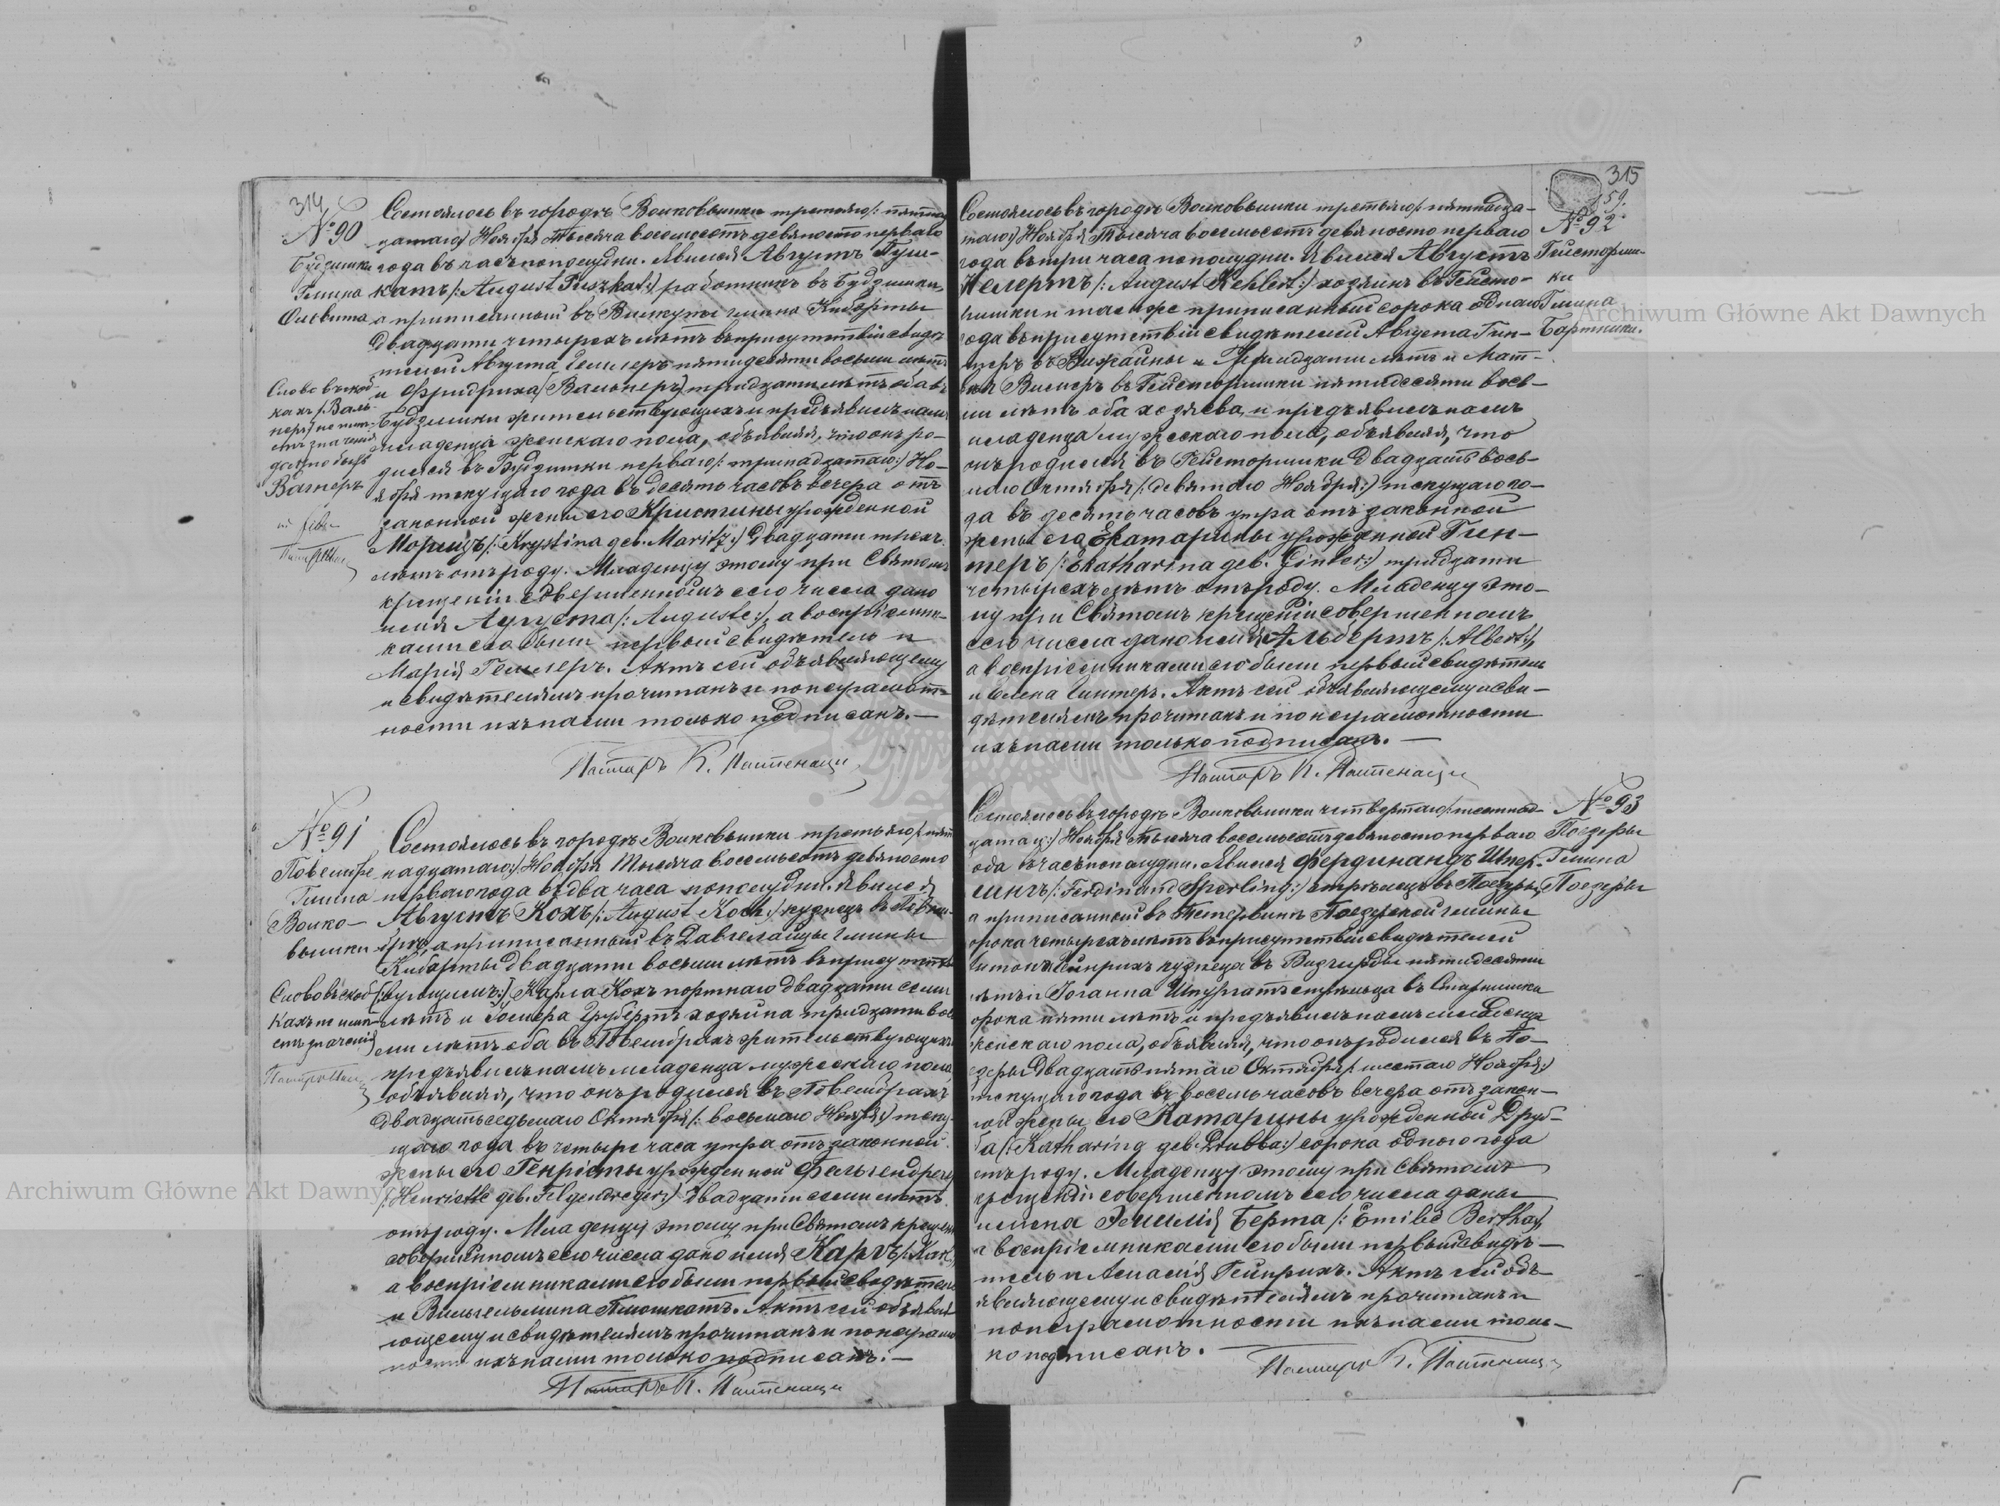 314
№ 90
Будзишки
Гмина
Ольвита
Состоялось въ городѣ Волковышки третьяго /: пятнад-
цатаго:/ Ноября Тысяча восемьсотъ девяносто перваго
года въ часъ пополудни. Явился Августъ Пуш-
катъ /: August Puszkat :/ работникъ въ Будзишки,
а приписанный въ гмина Кибарты
двадцати четырехъ лѣтъ въ присутствіи свидѣ-
телей Августа Гешлеръ пятидесяти восьми лѣтъ
и Фридриха /Вальнеръ/ тридцати лѣтъ оба въ
Будзишки жительствующихъ и предъявилъ намъ
младенца женскаго пола, объявляя, что онъ ро-
дился въ Будзишки перваго /: тринадцатаго :/ Но-
ября текущаго года въ десять часовъ вечера отъ
законной жены его Христины урожденной
Морицъ /: Krystina geb. Maritz :/ двадцати трехъ
лѣтъ отъ роду. Младенцу этому при Святомъ
крещеніи совершенномъ сего числа дано
имя Аугуста /: Auguste :/, а воспріемни-
ками его были первый свидѣтель и
Марія Гешлеръ. Актъ сей объявляющему
и свидѣтелямъ прочитанъ и по неграмот-
ности ихъ нами только подписанъ. —
Пасторъ К. Пастенаци
Слово въ скоб-
кахъ /: Валь-
неръ/ не имѣ-
етъ значенія
должно быть
Вагнеръ
№ 91
Повембре
Гмина
Волко-
вышки
Состоялось въ городѣ Волковышки третьяго /: пят-
надцатаго :/ Ноября Тысяча восемьсотъ девяносто
перваго года въ два часа пополудни. Явился
Августъ Кохъ /: August Koch :/ кузнецъ въ
а приписанный въ Давгелайцы гмины
Кибарты двадцати восьми лѣтъ въ присутств
Карла Кохъ портнаго двадцати семи
лѣтъ и Грубертъ хозяина тридцати во
сми лѣтъ оба въ жительствующихъ
предъявилъ намъ младенца мужескаго пола
объявляя, что онъ родился въ
двадцать седьмаго Октября /: восьмаго Ноября :/ теку-
щаго года въ четыре часа утра отъ законной
жены его Генріеты урожденной Фельгендрегеръ
/: Henriette geb. Felgendreger :/ двадцати семи лѣтъ
отъ роду. Младенцу этому при Святомъ креще
совершенномъ сего числа дано имя Карлъ /: Karl
а воспріемниками его были первый свидѣтель
и Вильгельмина Плюшкатъ. Актъ сей объявля
ющему и свидѣтелямъ прочитанъ и по неграмо
ности ихъ нами только подписанъ. —
Пасторъ К. Пастенаци
Слово въ скоб-
кахъ не имѣ-
етъ значенія
315
159.
№ 92
Гейсторишки
Гмина
Бартники.
Состоялось въ городѣ Волковышки третьяго /: пятнадца-
таго :/ Ноября Тысяча восемьсотъ девяносто перваго
года въ три часа пополудни. Явился Августъ
Келертъ /: August Kehlert :/ хозяинъ въ Гейсто-
ришки и тамже приписанный сорока одного
года въ присутствіи свидѣтелей Августа Гин-
теръ въ Вижайны тридцати лѣтъ и Мат-
вея въ Гейсторишки пятидесяти вось-
ми лѣтъ оба хозяева, и предъявилъ намъ
младенца мужескаго пола, объявляя, что
онъ родился въ Гейсторишки двадцать вось-
маго Октября /: девятаго Ноября :/ текущаго го-
да въ десять часовъ утра отъ законной
жены его Екатарины урожденной Гин-
теръ /: Ekatharina geb. Ginter :/ тридцати
четырехъ лѣтъ отъ роду. Младенцу это-
му при Святомъ крещеніи совершенномъ
сего числа дано имя Альбертъ /: Albert :/,
а воспріемниками его были первый свидѣтель
и Елена Гинтеръ. Актъ сей объявляющему и сви-
дѣтелямъ прочитанъ и по неграмотности
ихъ нами только подписанъ. —
Пасторъ К. Пастенаци
№ 93
Поезеры
Гмина
Поезеры
Состоялось въ городѣ Волковышки четвертаго /: шестнад-
цатаго :/ Ноября Тысяча восемьсотъ девяносто перваго
года въ часъ пополудни. Явился Фердинандъ Шпер-
лингъ /: Ferdinand Sperling :/ стрѣлецъ въ Поезеры,
а приписанный въ Поезерской гмины
сорока четырехъ лѣтъ въ присутствіи свидѣтелей
Гейнрихъ кузнеца въ Визгирды пятидесяти
лѣтъ и Іоганна стрѣльца въ
сорока пяти лѣтъ и предъявилъ намъ младенца
женскаго пола, объявляя, что онъ родился въ По-
езеры двадцать пятаго Октября /: шестаго Ноября :/
текущаго года въ восемь часовъ вечера отъ закон-
ной жены его Катарины урожденной Друб-
ба /: Katharina geb. Drubba :/ сорока одного года
отъ роду. Младенцу этому при Святомъ
крещеніи совершенномъ сего числа даны
имена Эмилія Берта /: Emilie Bertha :/,
а воспріемниками его были первый свидѣ-
тель и Амалія Гейнрихъ. Актъ сей объ-
являющему и свидѣтелямъ прочитанъ и
по неграмотности ихъ нами толь-
ко подписанъ. —
Пасторъ К. Пастенаци
Archiwum Główne Akt Dawnych
Archiwum Główne Akt Dawnych